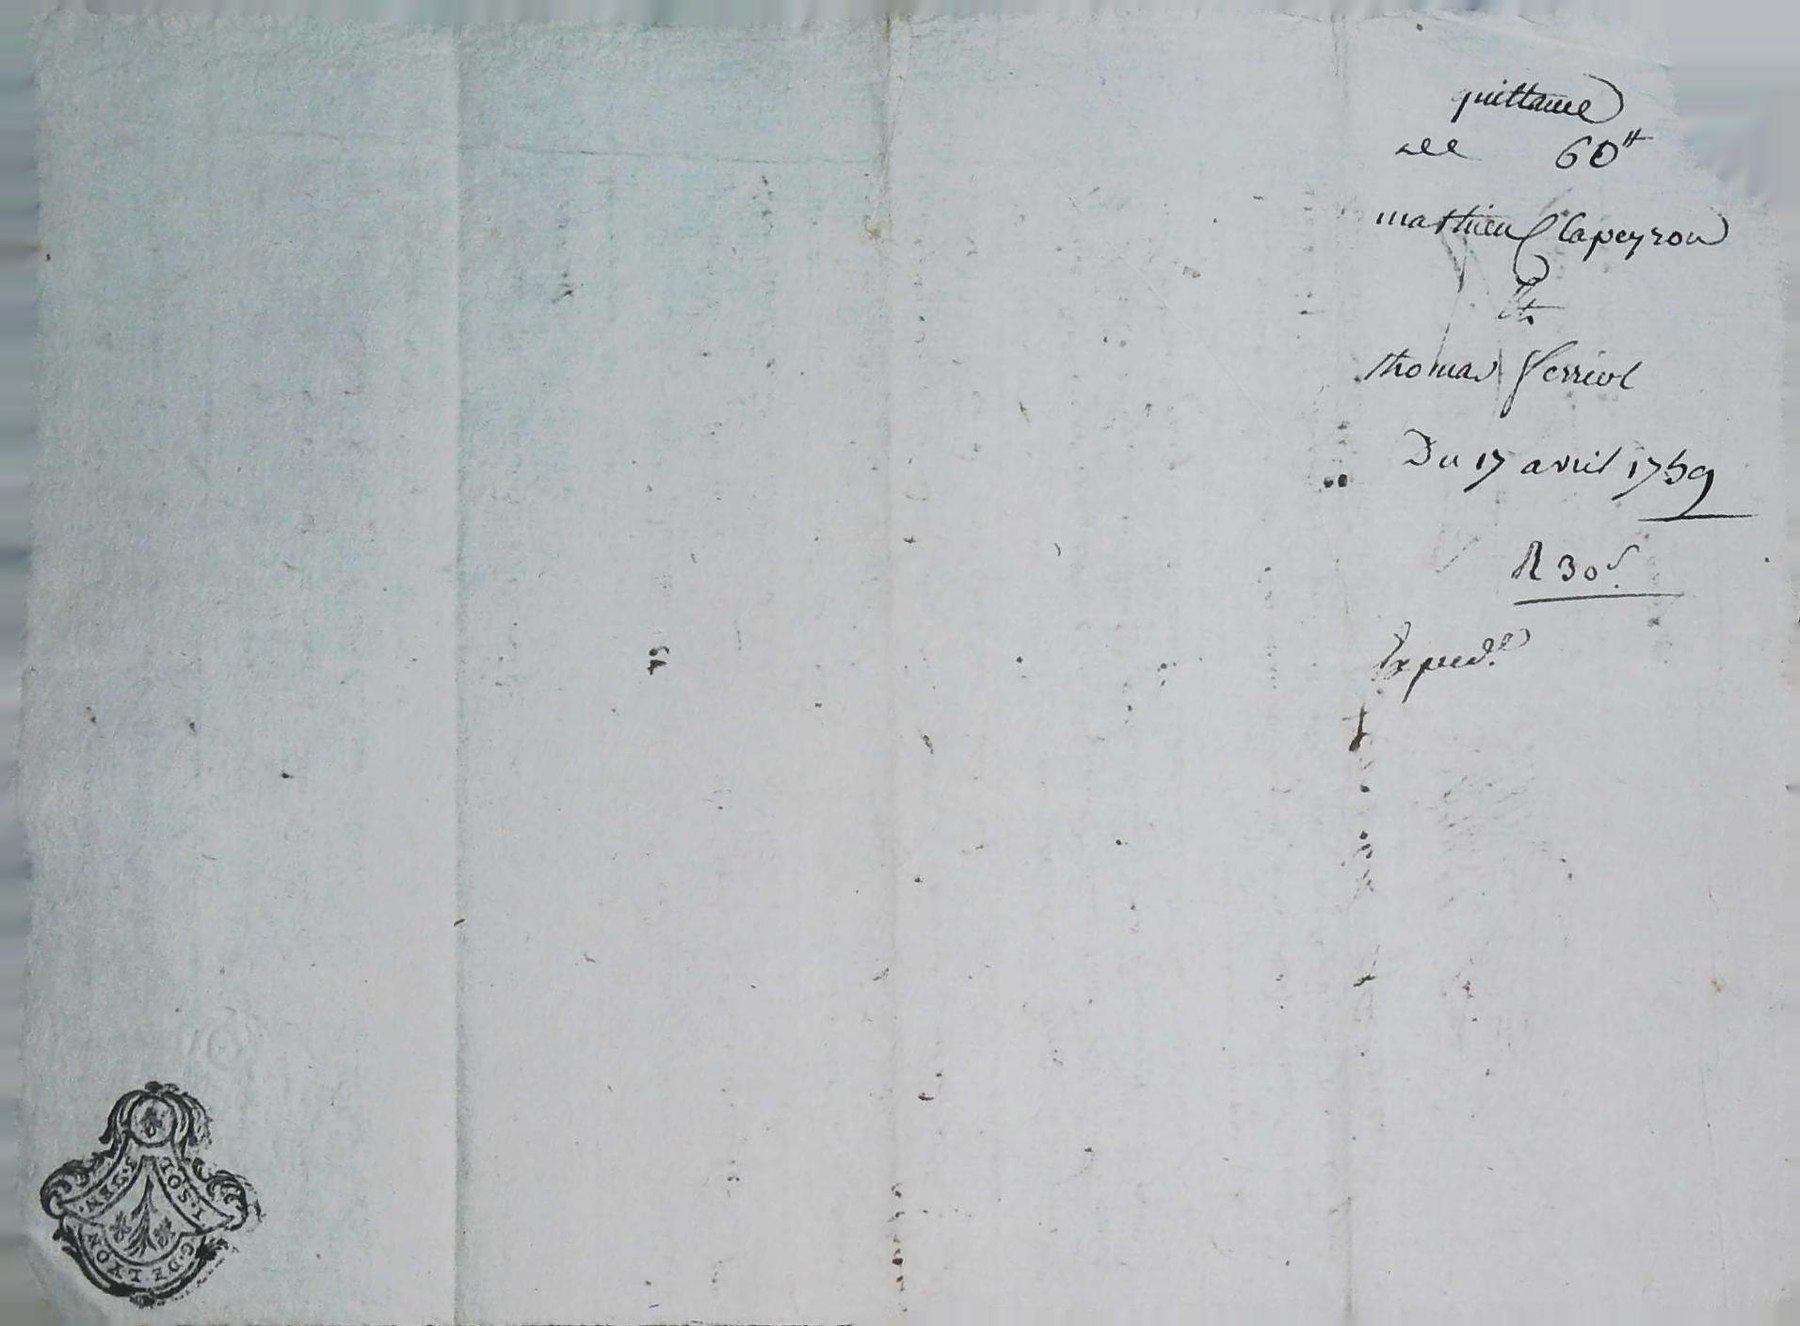 quittance
de 60ᵗᵗ
mathieu Clapeyron
et
thomas ferriol
Du 17 avril 1759
R 30ˢ.
Exped.ᵉ
LYON